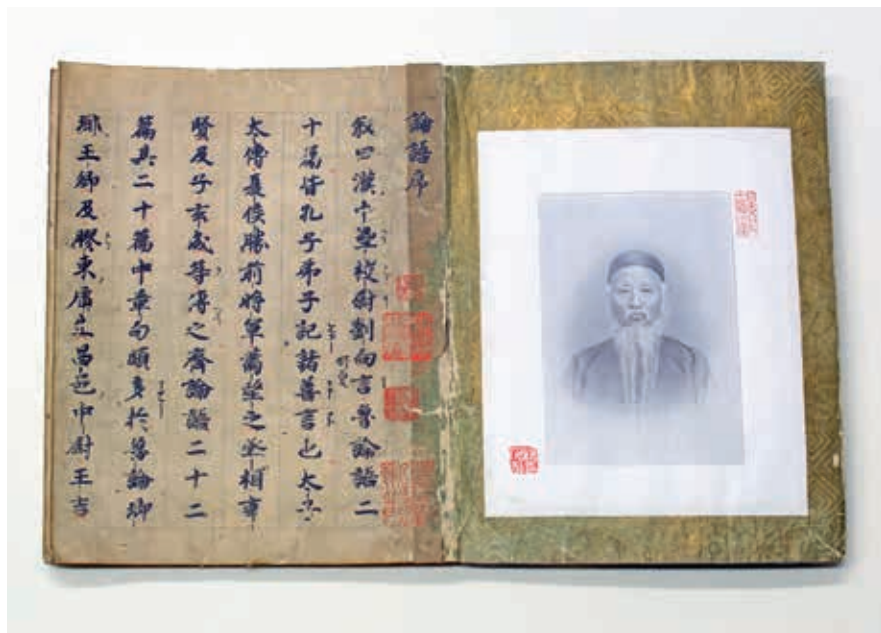 論語序
叙曰漢中壘校尉劉向言魯論語二
十篇皆孔子弟子記諸善言也太子
太傅夏侯勝前將軍蕭望之丞相韋
賢及子玄成等傳之齊論語二十二
篇其二十篇中章句頗多於魯論瑯
琊王卿及膠東庸生昌邑中尉王吉